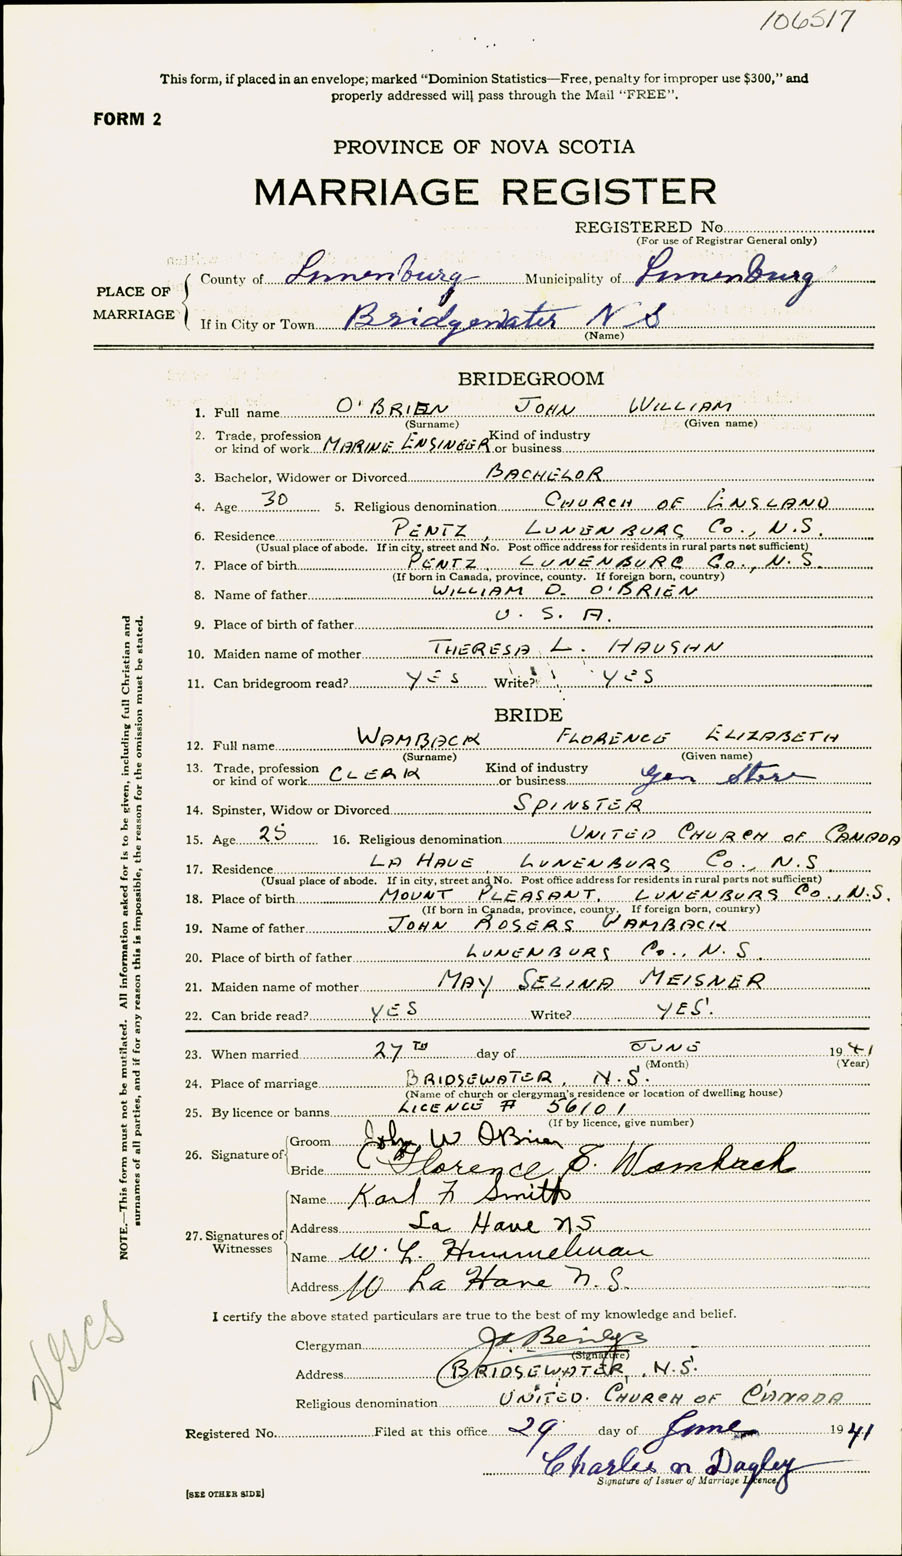 106517
This form, if placed in an envelope; marked "Dominion Statistics—Free, penalty for improper use $300," and
properly addressed will pass through the Mail "FREE".
FORM 2
PROVINCE OF NOVA SCOTIA
MARRIAGE REGISTER
REGISTERED No
(For use of Registrar General only)
PLACE OF MARRIAGE
County of Lunenburg Municipality of Lunenburg
If in City or Town Bridgewater N S
(Name)
BRIDEGROOM
1. Full name O'BRIEN JOHN WILLIAM
(Surname) (Given name)
2. Trade, profession or kind of work MARINE ENGINEER Kind of industry or business
3. Bachelor, Widower or Divorced BACHELOR
4. Age 30 5. Religious denomination CHURCH OF ENGLAND
6. Residence PENTZ, LUNENBURG Co., N.S.
(Usual place of abode. If in city, street and No. Post office address for residents in rural parts not sufficient)
7. Place of birth PENTZ, LUNENBURG Co., N.S.
(If born in Canada, province, county. If foreign born, country)
8. Name of father WILLIAM D. O'BRIEN
9. Place of birth of father U. S. A.
10. Maiden name of mother THERESA L. HAUGHN
11. Can bridegroom read? YES Write? YES
BRIDE
12. Full name WAMBACK FLORENCE ELIZABETH
(Surname) (Given name)
13. Trade, profession or kind of work CLERK Kind of industry or business Gen Store
14. Spinster, Widow or Divorced SPINSTER
15. Age 25 16. Religious denomination UNITED CHURCH OF CANADA
17. Residence LA HAVE LUNENBURG Co., N.S
(Usual place of abode. If in city, street and No. Post office address for residents in rural parts not sufficient)
18. Place of birth MOUNT PLEASANT, LUNENBURG Co., N.S.
(If born in Canada, province, county. If foreign born, country)
19. Name of father JOHN ROGERS WAMBACK
20. Place of birth of father LUNENBURG Co., N.S.
21. Maiden name of mother MAY SELINA MEISNER
22. Can bride read? YES Write? YES.
23. When married 27TH day of JUNE 1941
(Month) (Year)
24. Place of marriage BRIDGEWATER, N.S.
(Name of church or clergyman's residence or location of dwelling house)
25. By licence or banns LICENCE # 56101
(If by licence, give number)
26. Signature of
Groom John W O'Brien
Bride Florence E. Wamback
27. Signatures of Witnesses
Name Karl F Smith
Address La Have NS
Name W. L. Himmelman
Address W La Have N.S.
I certify the above stated particulars are true to the best of my knowledge and belief.
Clergyman
(Signature)
Address BRIDGEWATER, N.S.
Religious denomination UNITED CHURCH OF CANADA
Registered No. Filed at this office 29 day of June 1941
Charles N Dagley
Signature of Issuer of Marriage Licence
[SEE OTHER SIDE]
NOTE.—This form must not be mutilated. All information asked for is to be given, including full Christian and
surnames of all parties, and if for any reason this is impossible, the reason for the omission must be stated.